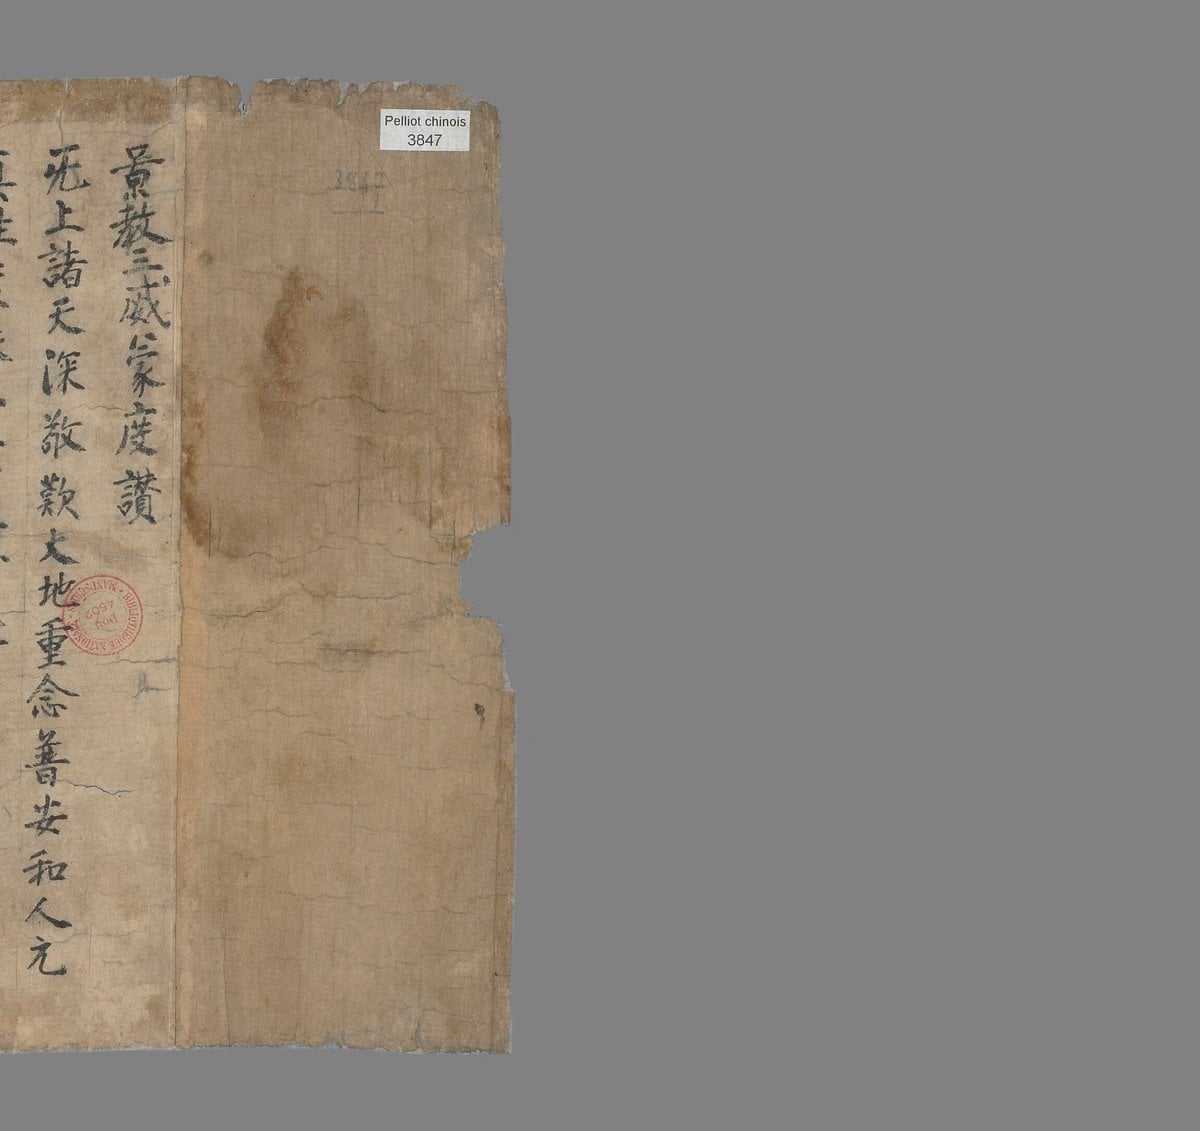 景教三威蒙度讚
旡上諸天深敬歎大地重念普安和人元
真性
Pelliot chinois
3847
3847
BIBLIOTHEQUE NATIONALE
MANUSCRITS
Don
4502